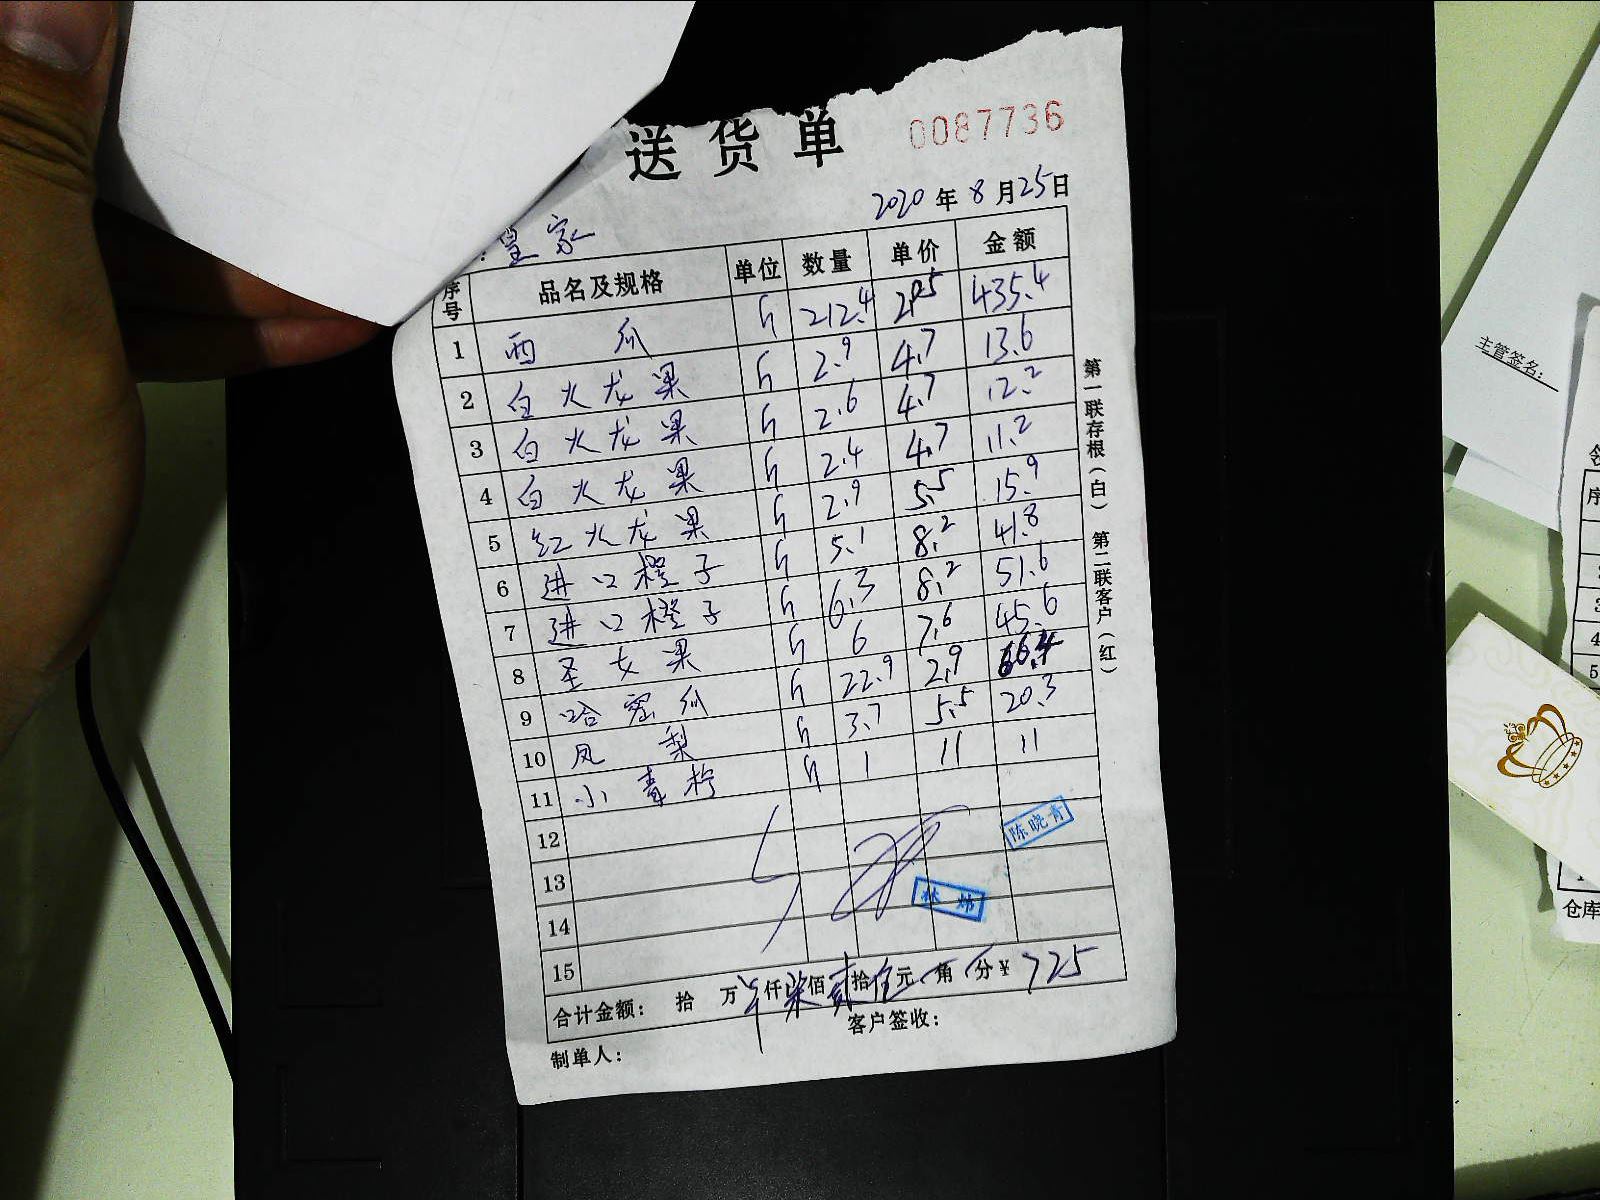 送货单 0087736
2020年8月25日
:皇家
序号 品名及规格 单位 数量 单价 金额
1 西瓜 斤 212.4 2.05 435.4
2 白火龙果 斤 2.9 4.7 13.6
3 白火龙果 斤 2.6 4.7 12.2
4 白火龙果 斤 2.4 4.7 11.2
5 红火龙果 斤 2.9 5.5 15.9
6 进口橙子 斤 5.1 8.2 41.8
7 进口橙子 斤 6.3 8.2 51.6
8 圣女果 斤 6 7.6 45.6
9 哈密瓜 斤 22.9 2.9 66.4
10 凤梨 斤 3.7 5.5 20.3
11 小青柠 斤 1 11 11
12
陈晓青
13
14
林炜
15
合计金额: 拾 万 仟柒佰贰拾伍元 角 分¥ 725
制单人: 客户签收:
第一联存根(白) 第二联客户(红)
主管签名:
序
3
4
5
仓库